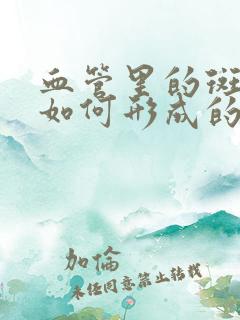 血管里的斑
如何形成的
加倫
未经同意禁止转载